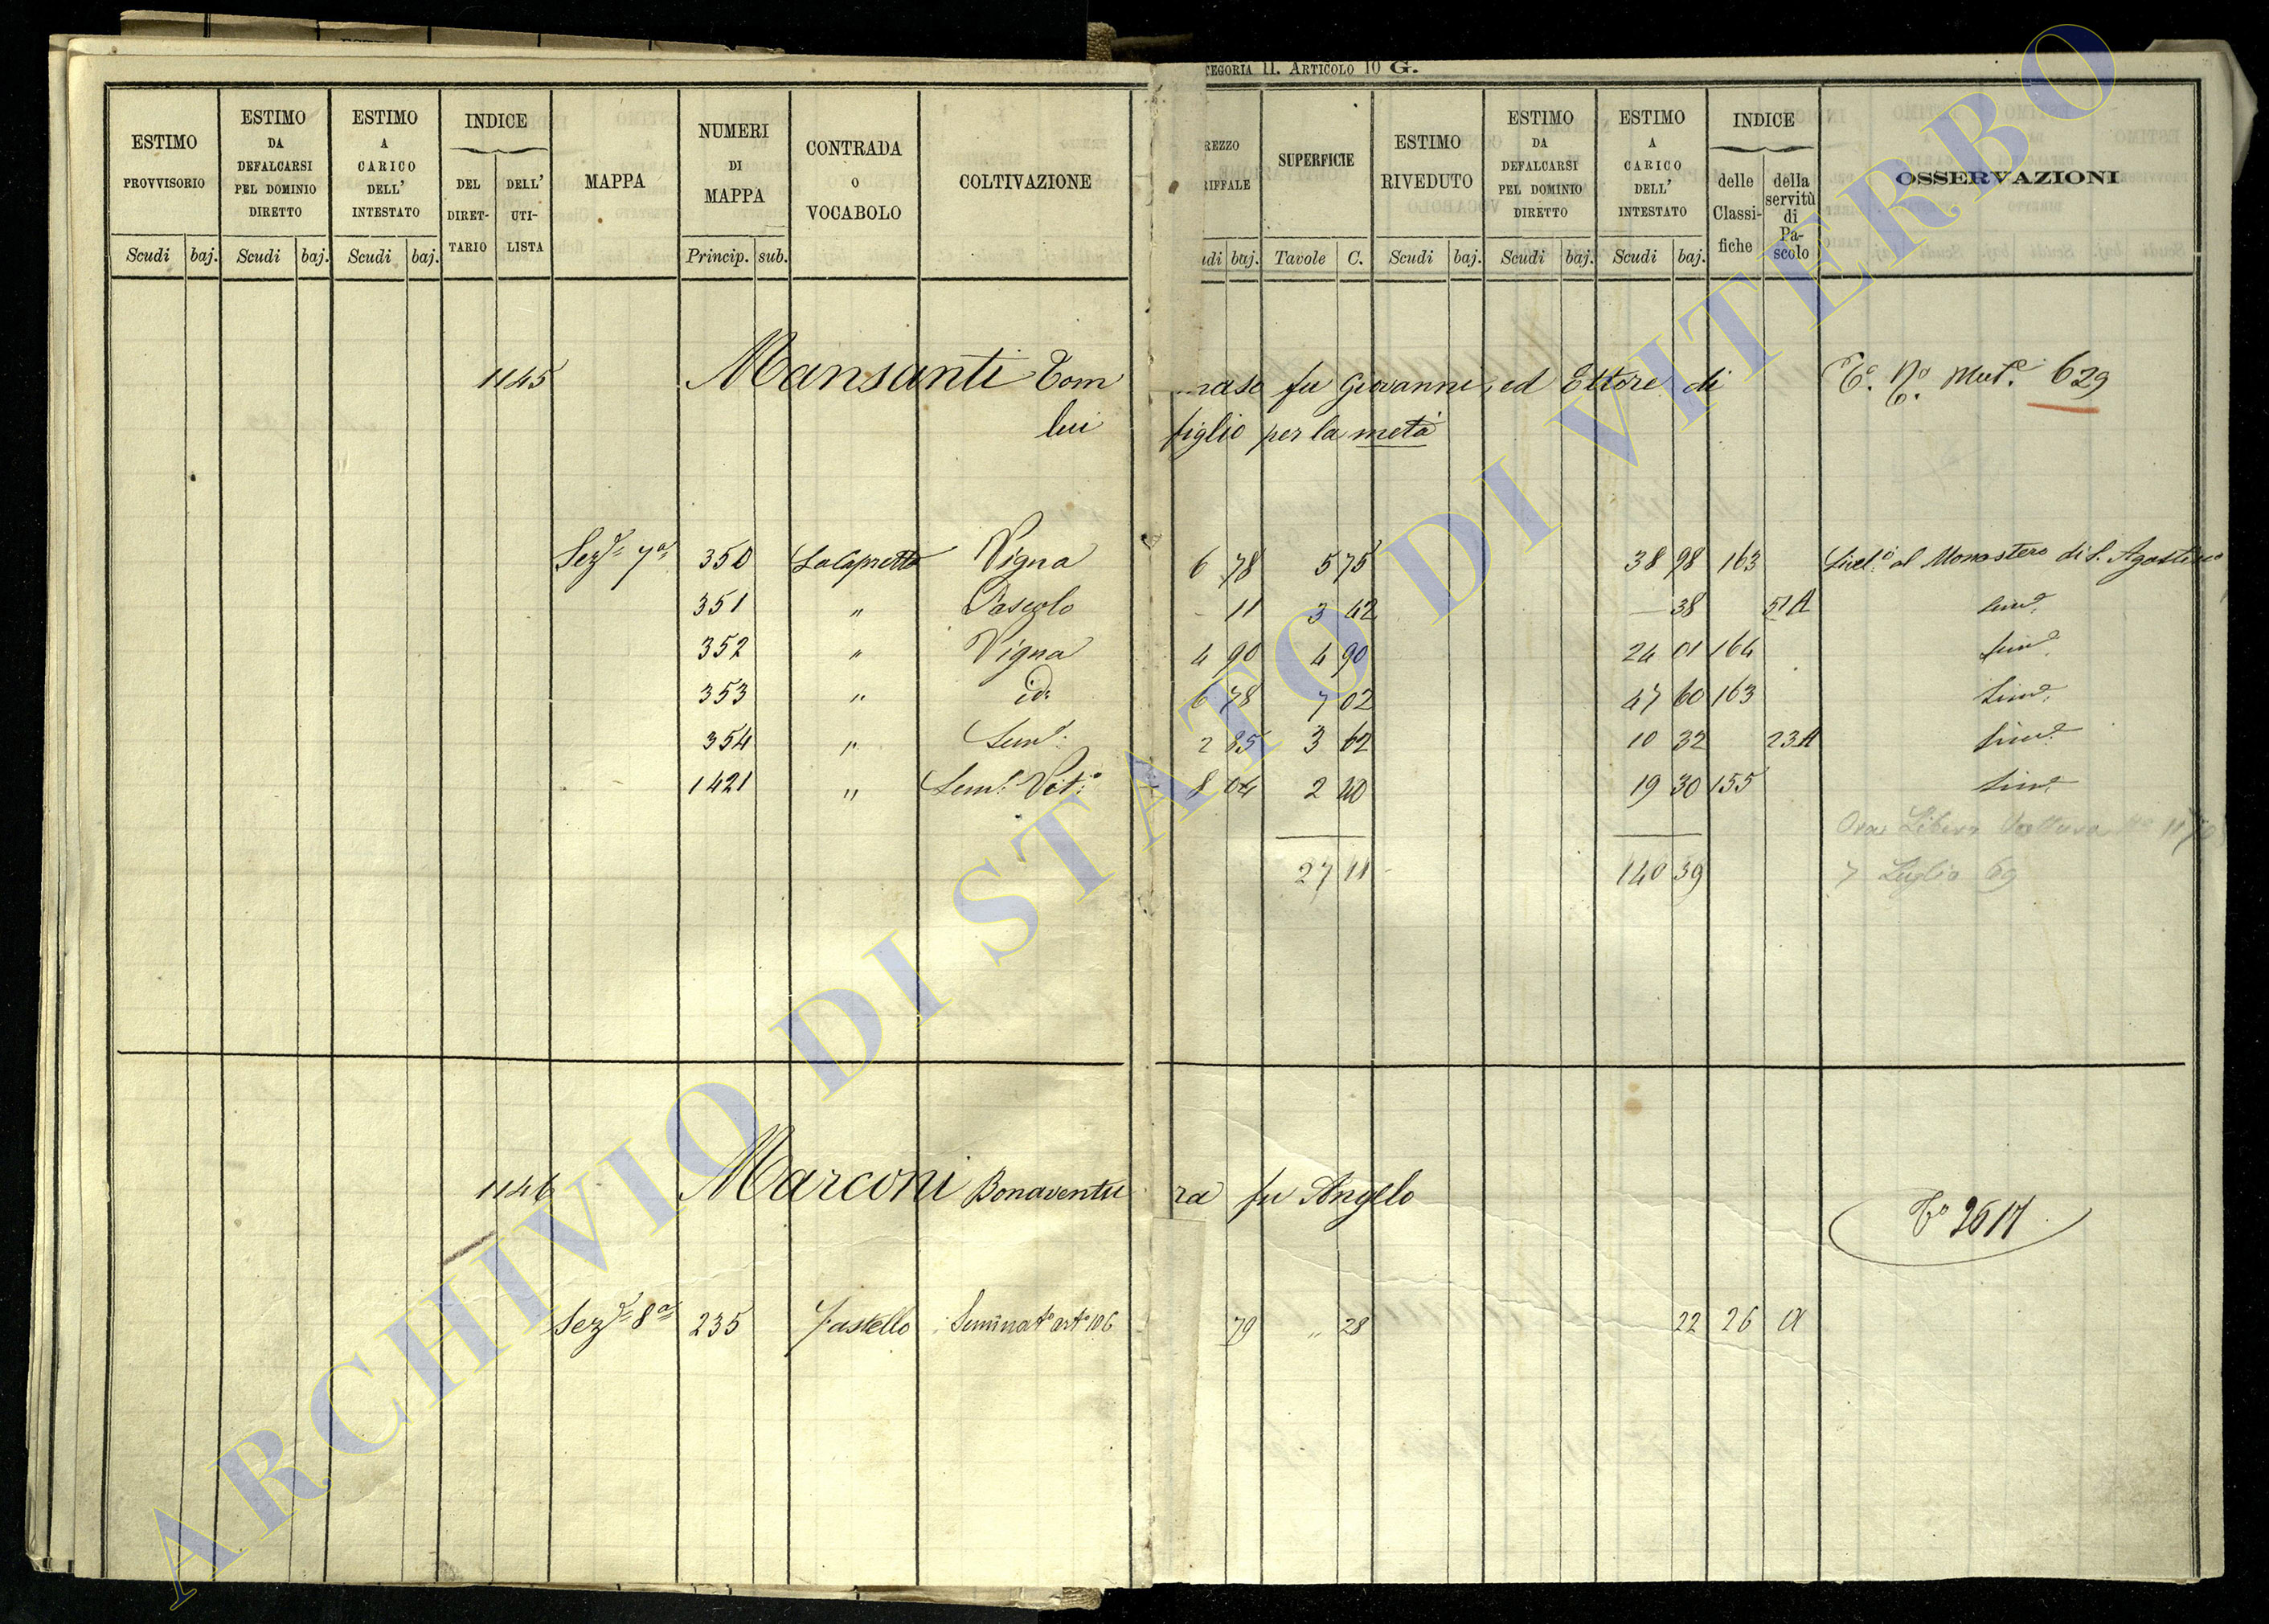 TEGORIA II. ARTICOLO 10 G.
ESTIMO PROVVISORIO
ESTIMO DA DEFALCARSI PEL DOMINIO DIRETTO
ESTIMO A CARICO DELL' INTESTATO
INDICE
DEL DIRETTARIO
DELL' UTILISTA
MAPPA
NUMERI DI MAPPA
CONTRADA O VOCABOLO
COLTIVAZIONE
REZZO RIFFALE
SUPERFICIE
ESTIMO RIVEDUTO
ESTIMO DA DEFALCARSI PEL DOMINIO DIRETTO
ESTIMO A CARICO DELL' INTESTATO
INDICE
delle Classifiche
della servitù di Pascolo
OSSERVAZIONI
Scudi baj. Scudi baj. Scudi baj. Princip. sub. udi baj. Tavole C. Scudi baj. Scudi baj. Scudi baj.
1145 Mansanti Tommaso fu Giovanni, ed Ettore di Mut.e 629
lui figlio per la metà
Sez.e 7a 350 Vigna 6 78 5 75 38 98 163 Livel.o al Monastero di S. Agostino
351 " Pascolo - 11 3 42 - 38 51 A Sim.e
352 " Vigna 4 90 4 90 24 01 164 Sim.e
353 " id. 6 78 7 02 47 60 163 Sim.e
354 " Sem.o 2 85 3 62 10 32 23 A Sim.e
1421 " Sem.o Vit.o 8 04 2 40 19 30 155 Sim.e
27 11 140 39
7 Luglio 69
1146 Marconi Bonaventura fu Angelo
T.o 2617
Sez.e 8a 235 Seminat.o art.o 106 79 " 28 22 26 A
ARCHIVIO DI STATO DI VITERBO